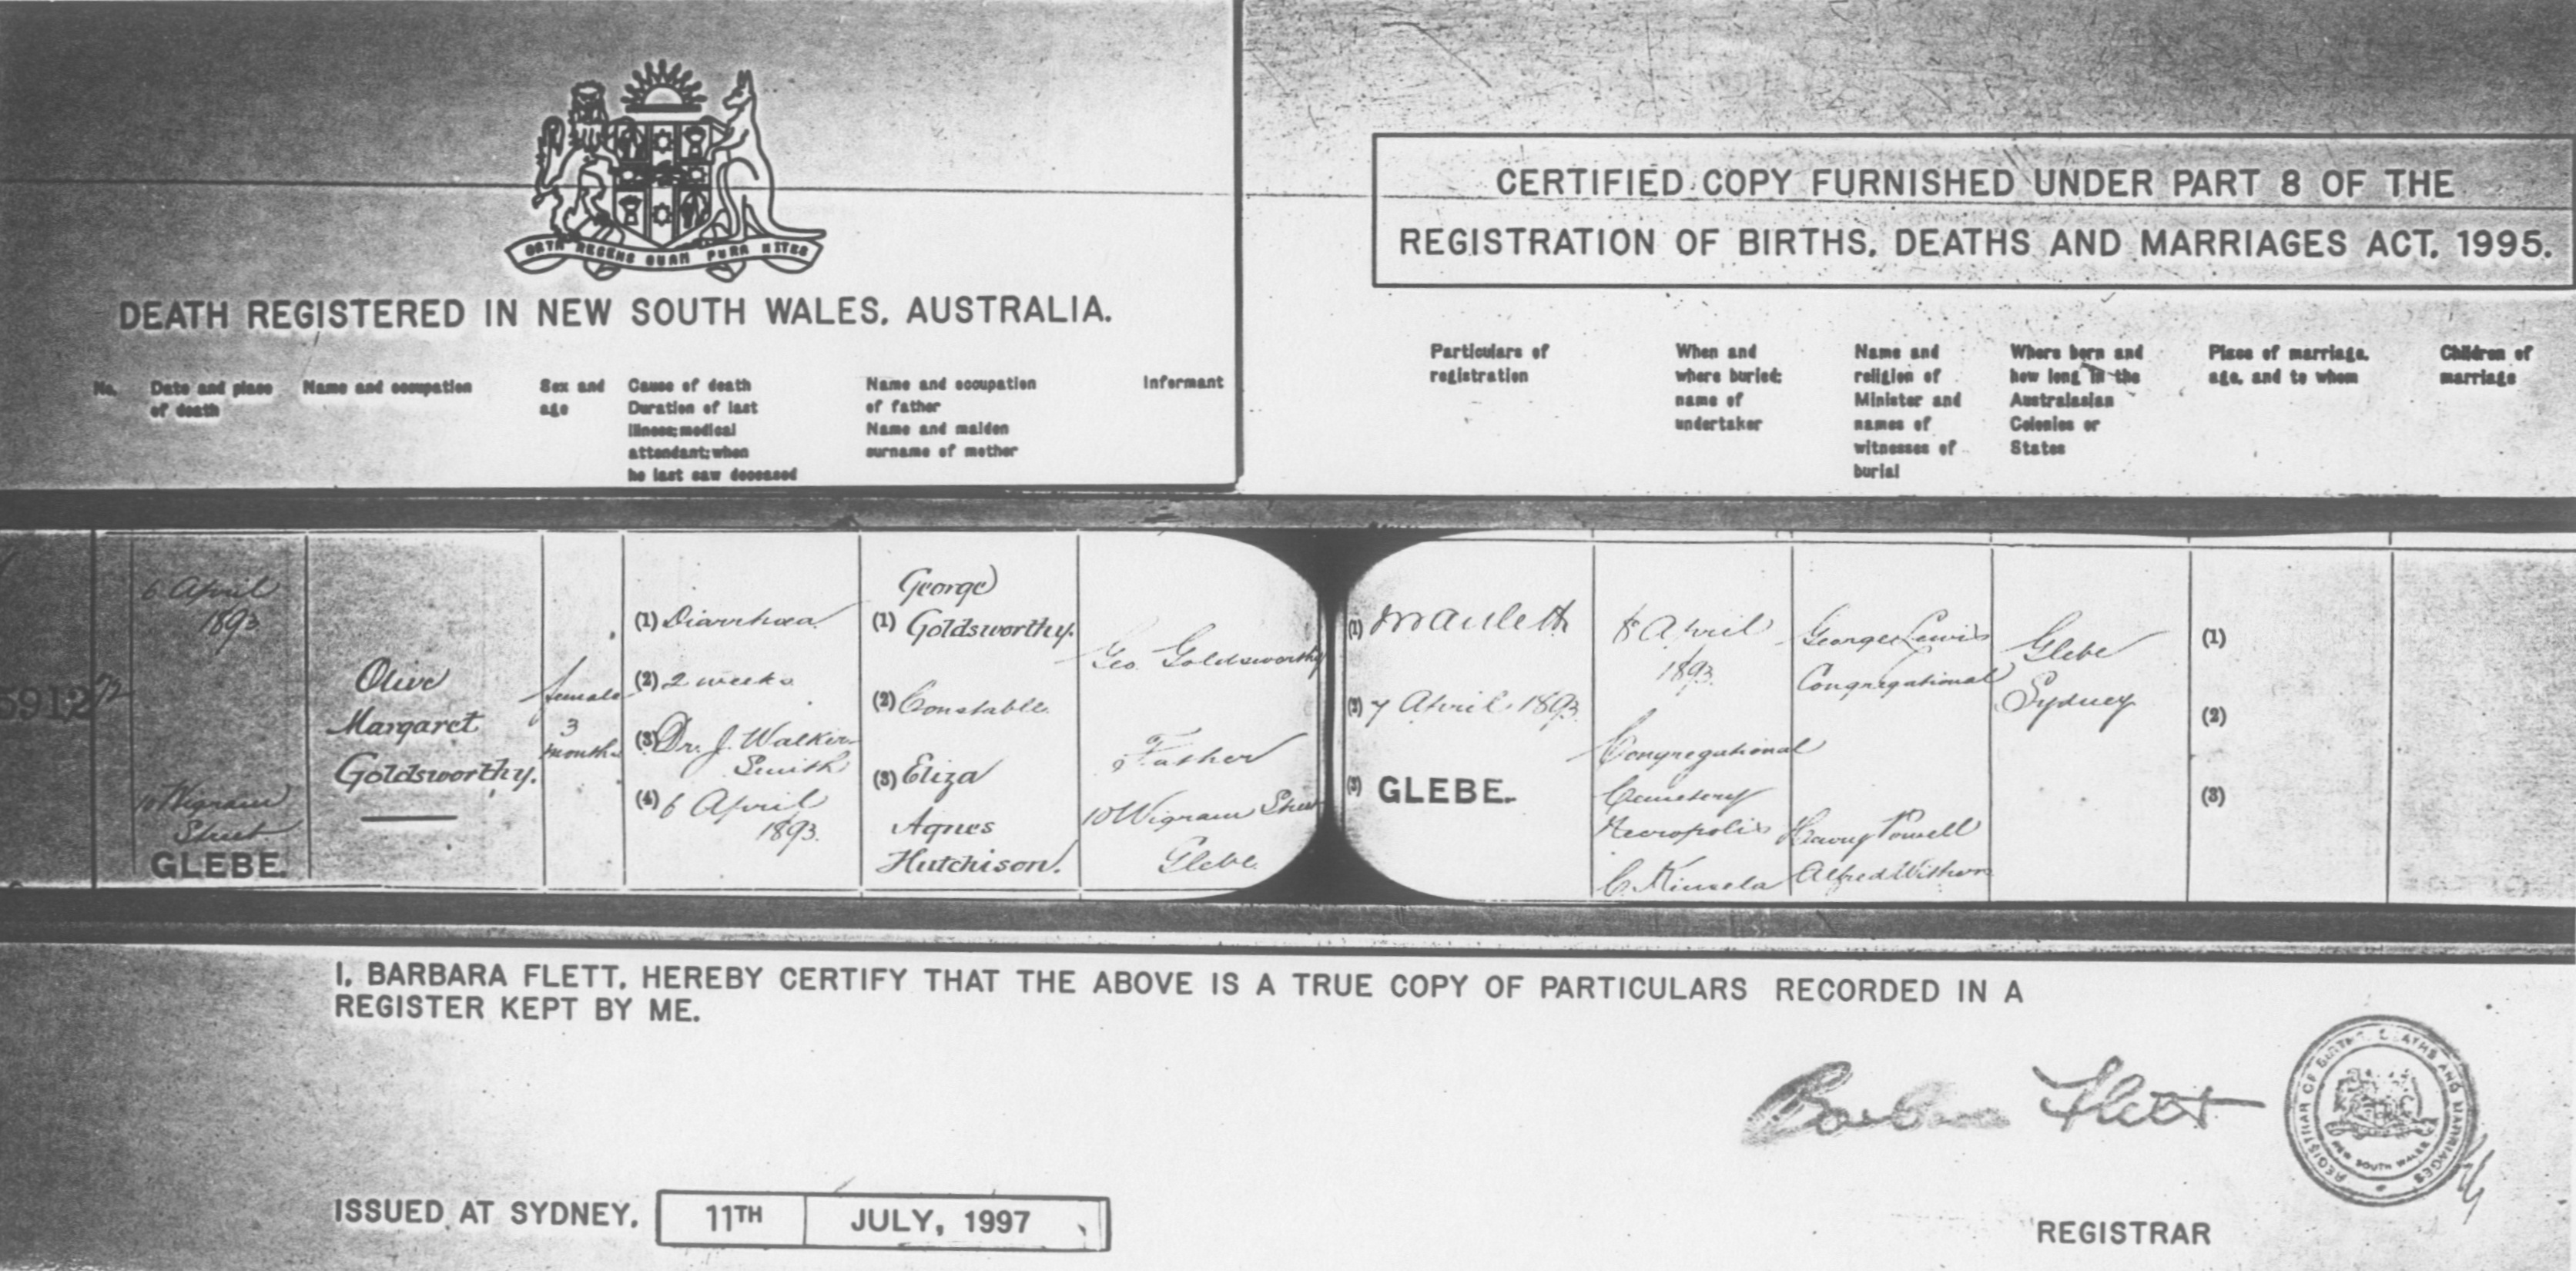 ORTA RECENS QUAM PURA NITES
DEATH REGISTERED IN NEW SOUTH WALES, AUSTRALIA.
CERTIFIED COPY FURNISHED UNDER PART 8 OF THE
REGISTRATION OF BIRTHS, DEATHS AND MARRIAGES ACT, 1995.
No.
Date and place
of death
Name and occupation
Sex and
age
Cause of death
Duration of last
illness; medical
attendant; when
he last saw deceased
Name and occupation
of father
Name and maiden
surname of mother
Informant
Particulars of
registration
When and
where buried;
name of
undertaker
Name and
religion of
Minister and
names of
witnesses of
burial
Where born and
how long in the
Australasian
Colonies or
States
Place of marriage,
age, and to whom
Children of
marriage
5912
6 April
1893
10 Wigram
Street
GLEBE.
Olive
Margaret
Goldsworthy.
female
3
months
(1) Diarrhoea
(2) 2 weeks
(3) Dr. J. Walker
Smith
(4) 6 April
1893.
George
(1) Goldsworthy.
(2) Constable
(3) Eliza
Agnes
Hutchison.
Geo. Goldsworthy
Father
10 Wigram Street
Glebe
(1)
(2) 7 April 1893
(3) GLEBE.
8 April
1893.
Congregational
Cemetery
Necropolis
C. Kinsela
George Lewis
Congregational
Henry Powell
Alfred
Glebe
Sydney
(1)
(2)
(3)
I, BARBARA FLETT, HEREBY CERTIFY THAT THE ABOVE IS A TRUE COPY OF PARTICULARS RECORDED IN A
REGISTER KEPT BY ME.
Barbara Flett
REGISTRAR OF BIRTHS, DEATHS AND MARRIAGES
NEW SOUTH WALES
ISSUED AT SYDNEY, 11TH JULY, 1997
REGISTRAR